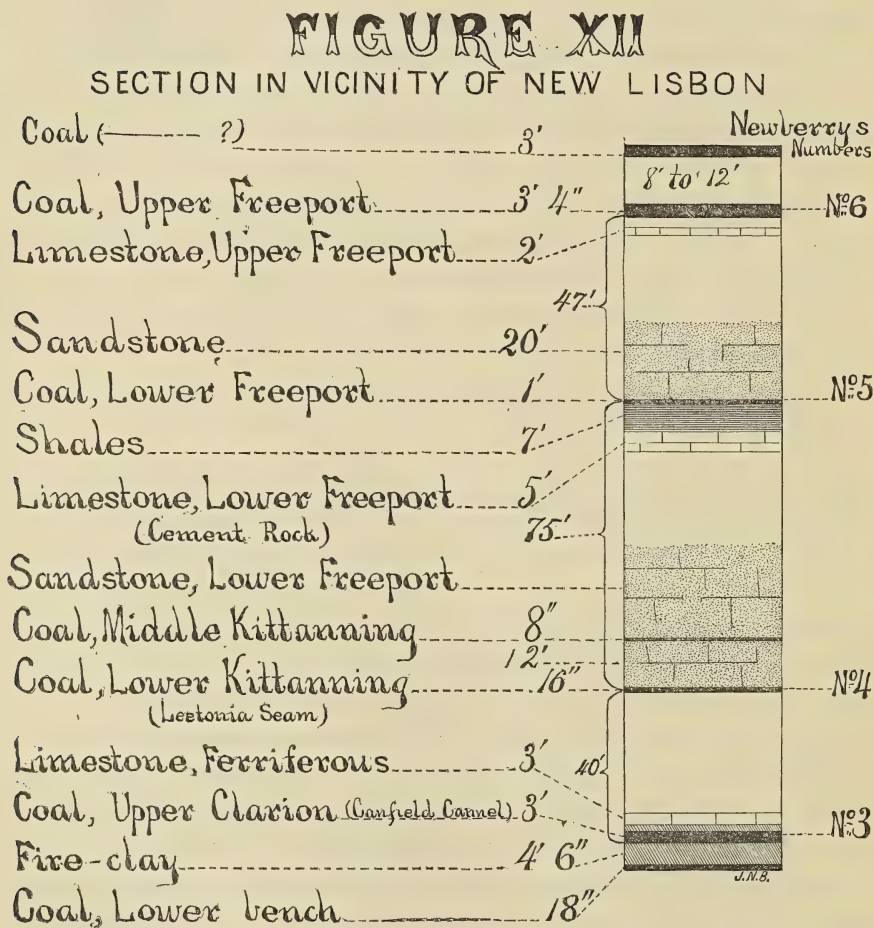 FIGURE XII
SECTION IN VICINITY OF NEW LISBON
Newberrys
Numbers
Coal (——---- ?) 3'
8' to 12'
Coal, Upper Freeport 3' 4" Nº6
Limestone, Upper Freeport 2'
47'
Sandstone 20'
Coal, Lower Freeport 1' Nº5
Shales 7'
Limestone, Lower Freeport 5'
(Cement Rock) 75'
Sandstone, Lower Freeport
Coal, Middle Kittanning 8"
12'
Coal, Lower Kittanning 16" Nº4
(Leetonia Seam)
Limestone, Ferriferous 3'
40'
Coal, Upper Clarion (Canfield Cannel) 3' Nº3
Fire-clay 4' 6"
J.N.B.
Coal, Lower bench 18"